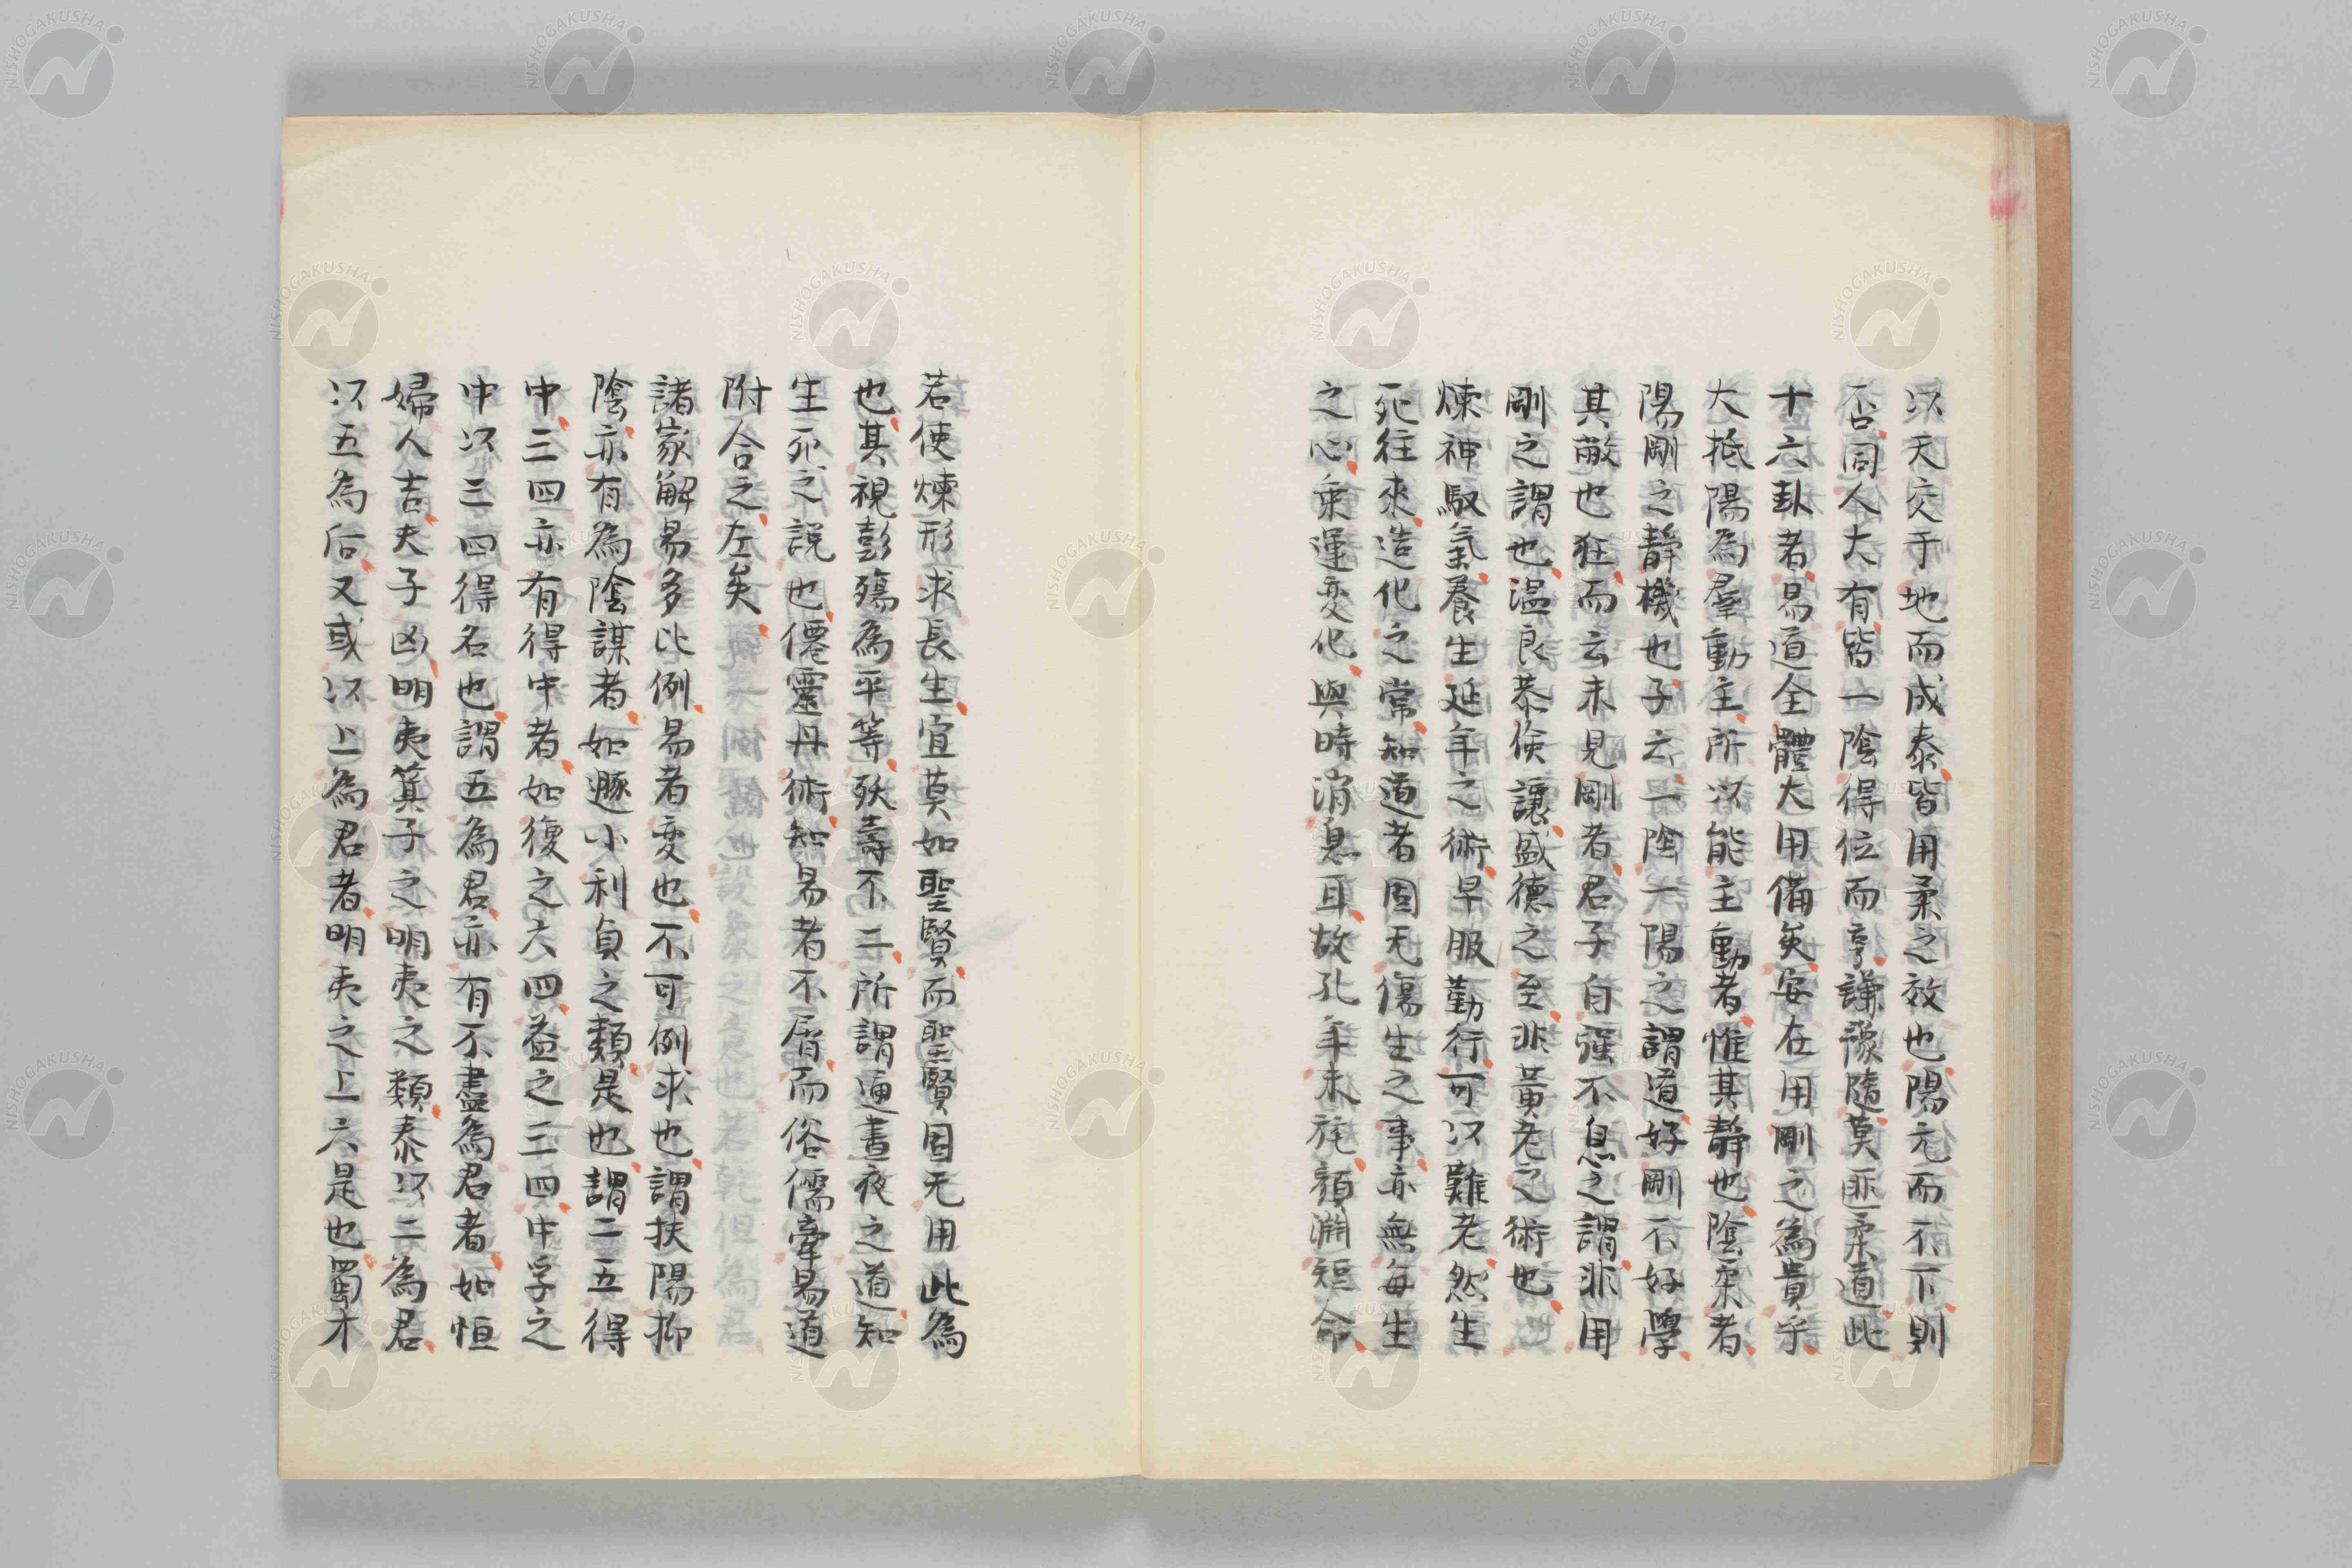 以天交于地而成泰皆用柔之效也陽亢而不下則
否同人大有皆一陰得位而亨謙豫隨莫匪柔道此
十六卦者易道全體大用備矣安在用剛之為貴乎
大抵陽為羣動主所以能主動者惟其靜也陰柔者
陽剛之靜機也子云一陰一陽之謂道好剛不好學
其敝也狂而云未見剛者君子自强不息之謂非用
剛之謂也温良恭儉讓盛德之至非黃老之術也
煉神馭氣養生延年之術早服勤行可以難老然生
死往來造化之常知道者固无傷生之事亦無每生
之心乗運変化與時消息耳故孔年未旄顏淵短命
若使煉形求長生宜莫如聖賢而聖賢固无用此為
也其視彭殤為平等殀壽不二所謂通晝夜之道知
生死之說也僊靈丹術知易者不屑而俗儒牽易道
附合之左矣
諸家解易多比例易者変也不可例求也謂扶陽抑
陰亦有為陰謀者如遯小利貞之類是也謂二五得
中三四亦有得中者如復之六四益之三四中孚之
中以三四得名也謂五為君亦有不盡為君者如恒
婦人吉夫子凶明夷箕子之明夷之類泰以二為君
以五為后又或以上為君者明夷之上六是也蜀才
NISHOGAKUSHA